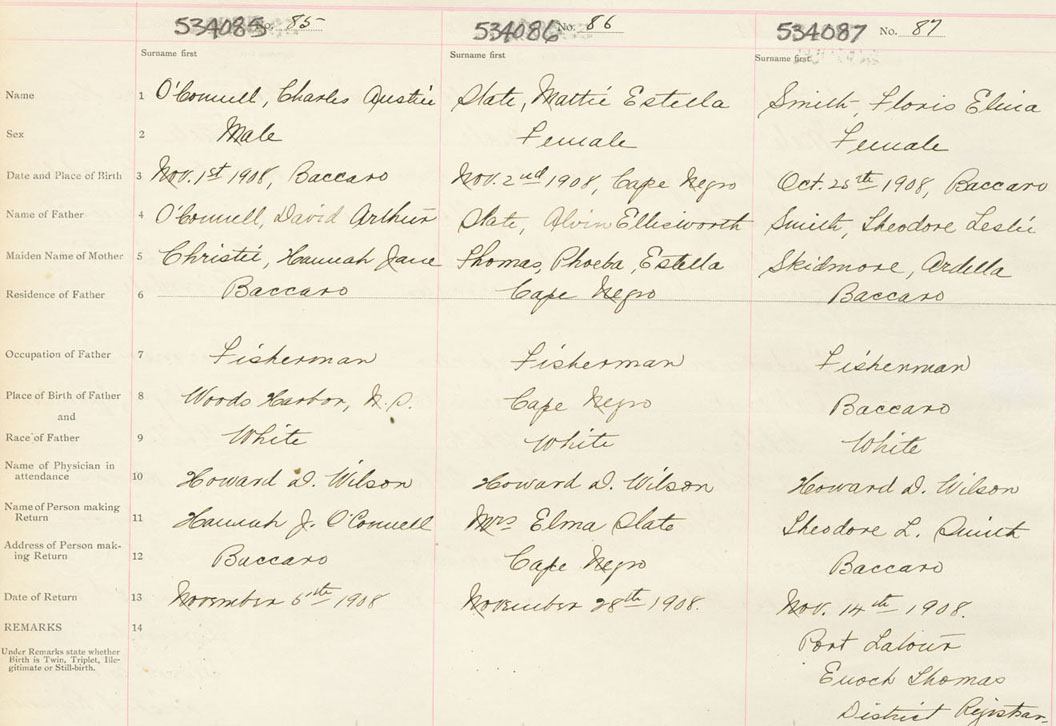 534085 No. 85 534086 No. 86 534087 No. 87
Surname first Surname first Surname first
Name 1 O'Connell, Charles Austin Slate, Mattie Estella Smith, Floris Elina
Sex 2 Male Female Female
Date and Place of Birth 3 Nov. 1st 1908, Baccaro Nov. 2nd 1908, Cape Negro Oct. 25th 1908, Baccaro
Name of Father 4 O'Connell, David Arthur Slate, Alvin Ellisworth Smith, Theodore Leslie
Maiden Name of Mother 5 Christie, Hannah Jane Thomas, Phoeba, Estella Skidmore, Ardella
Residence of Father 6 Baccaro Cape Negro Baccaro
Occupation of Father 7 Fisherman Fisherman Fisherman
Place of Birth of Father 8 Woods Harbor, N.S. Cape Negro Baccaro
and
Race of Father 9 White White White
Name of Physician in
attendance 10 Howard D. Wilson Howard D. Wilson Howard D. Wilson
Name of Person making
Return 11 Hannah J. O'Connell Mrs Elma Slate Theodore L. Smith
Address of Person mak-
ing Return 12 Baccaro Cape Negro Baccaro
Date of Return 13 November 6th 1908 November 28th 1908. Nov. 14th 1908.
REMARKS 14 Port Latour
Under Remarks state whether
Birth is Twin, Triplet, Ille-
gitimate or Still-birth.
Enoch Thomas
District Registrar